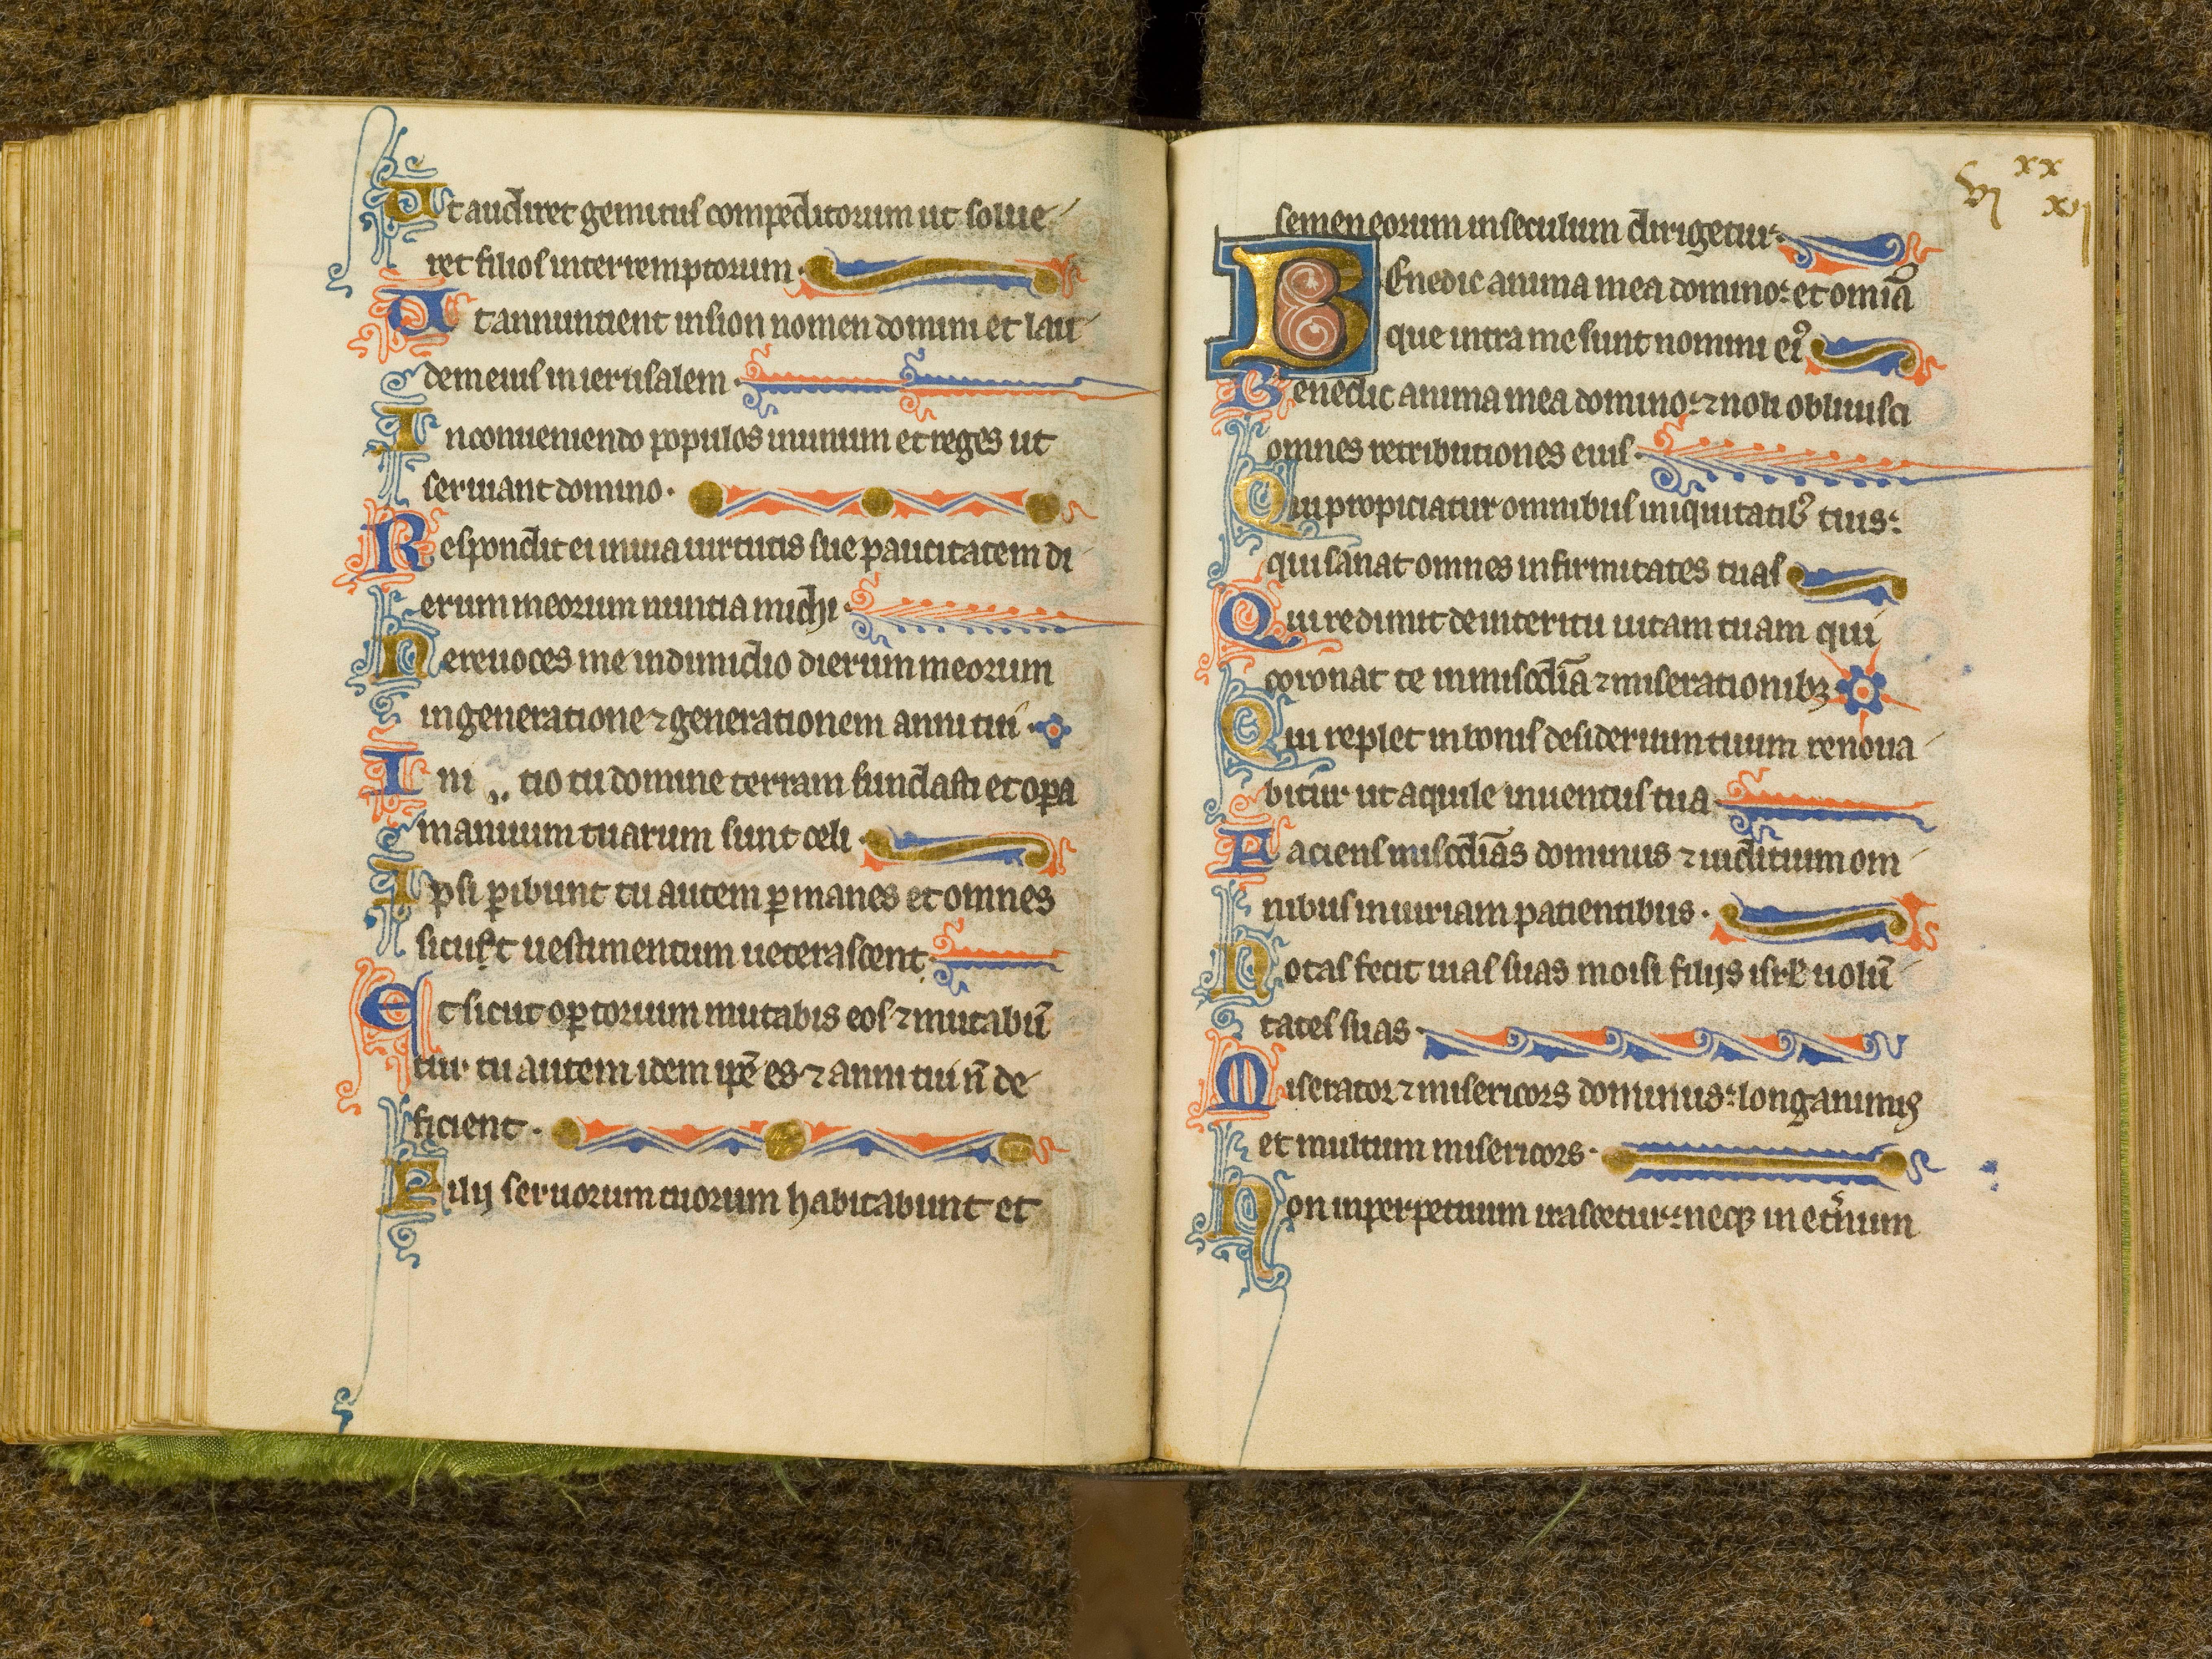 Ut audiret gemitus compeditorum ut solue
ret filios interremptorum.
Ut annuntient in sion nomen domini et lau
dem eius in ierusalem.
In conueniendo populos in unum et reges ut
seruiant domino.
Respondit ei in uia uirtutis sue paucitatem di
erum meorum nuntia michi.
Ne reuoces me in dimidio dierum meorum
in generatione ⁊ generationem anni tui.
Ini tio tu domine terram fundasti et opa
manuum tuarum sunt celi.
Ipsi ꝑibunt tu autem ꝑmanes et omnes
sicut uestimentum ueterascent.
Et sicut opꝑtorium mutabis eos ⁊ mutabū
tur tu autem idem ip̄e es ⁊ anni tui n̄ de
ficient.
Filij seruorum tuorum habitabunt et
vi xx xvj
semen eorum in seculum dirigetur.
Benedic anima mea domino: et omīa
que intra me sunt nomini eiꝰ
Benedic anima mea domino: ⁊ noli obliuisci
omnes retributiones eius.
Qui propiciatur omnibus iniquitatibꝰ tuis:
qui sanat omnes infirmitates tuas
Qui redimit de interitu uitam tuam qui
coronat te in mis̄cdia ⁊ miserationibꝫ.
Qui replet in bonis desiderium tuum renoua
bitur ut aquile iuuentus tua.
Faciens mis̄cdias dominus ⁊ iuditium om
nibus iniuriam patientibus.
Notas fecit uias suas moisi filijs isrł uolū
tates suas.
Miserator ⁊ misericors dominus: longanimꝰ
et multum misericors.
Non in perpetuum irascetur: neqꝫ in et̄num